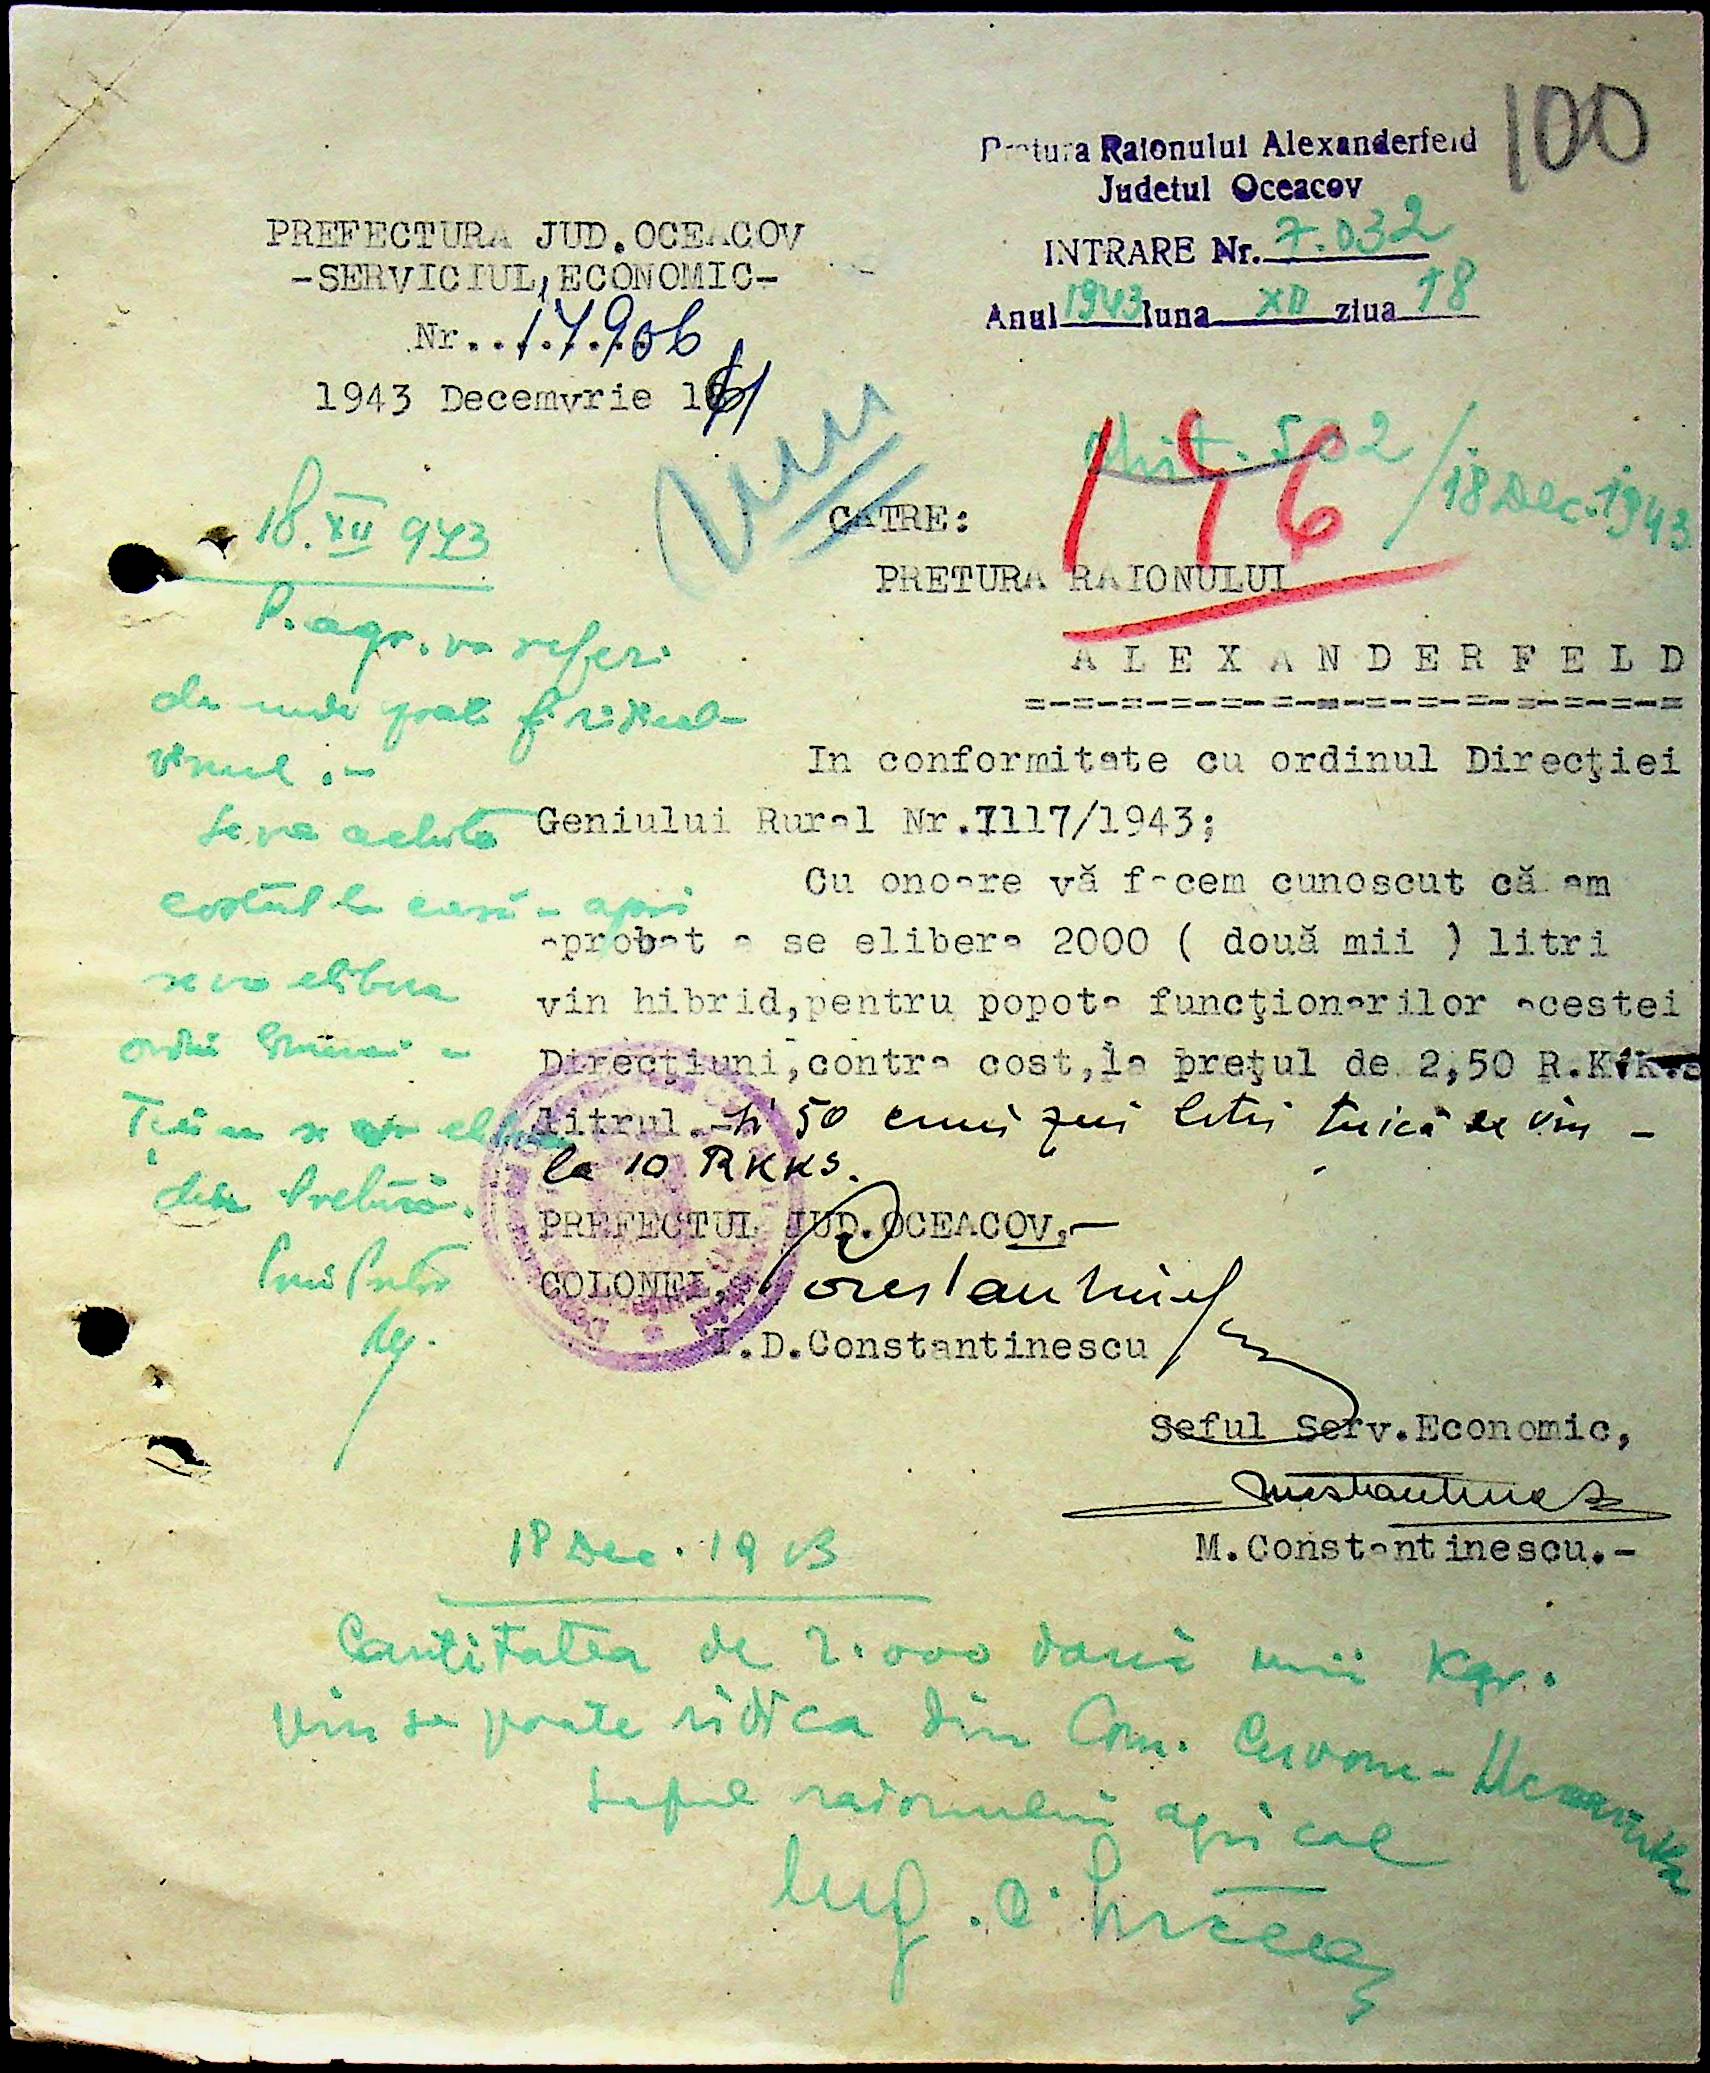 100
Pretura Raionului Alexanderfeld
Judetul Oceacov
INTRARE Nr. 7.032
Anul 1943 luna XII ziua 18
PREFECTURA JUD.OCEACOV
-SERVICIUL ECONOMIC-
Nr. 17906
1943 Decemvrie 16
502 / 18 Dec. 1943
CATRE:
PRETURA RAIONULUI
ALEXANDERFELD
=-=-=-=-=-=-=-=-=-=-=-=-=-=
In conformitate cu ordinul Direcţiei
Geniului Rural Nr.7117/1943;
Cu onoare vă facem cunoscut că am
aprobat a se elibera 2000 ( două mii ) litri
vin hibrid,pentru popota funcţionarilor acestei
Direcţiuni,contra cost,la preţul de 2,50 R.K.K.S
litrul.- și 50 litri țuică de vin -
la 10 RKKS.
PREFECTUL JUD.OCEACOV,-
COLONEL,
I.D.Constantinescu
Seful Serv.Economic,
M.Constantinescu.-
18. XII 943
P. agr. va referi
de unde poate fi ridicat
vinul .-
Se va achita
costul la casă - apoi
se va elibera
din Pretură.
18 Dec. 1943
Cantitatea de 2.000 două mii Kgr.
vin se poate ridica din Com.
Seful raionului agricol
Ing.